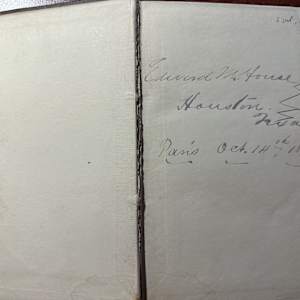 Edward M. House
Houston
Paris Oct. 14th